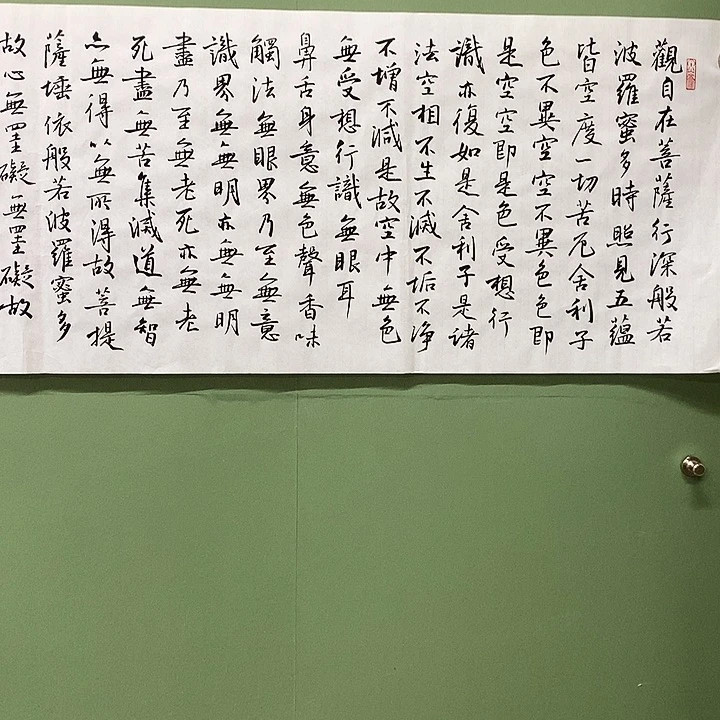 觀自在菩薩行深般若
波羅蜜多時照見五蘊
皆空度一切苦厄舍利子
色不異空空不異色色即
是空空即是色受想行
識亦復如是舍利子是諸
法空相不生不滅不垢不淨
不增不減是故空中無色
無受想行識無眼耳
鼻舌身意無色聲香味
觸法無眼界乃至無意
識界無無明亦無無明
盡乃至無老死亦無老
死盡無苦集滅道無智
亦無得以無所得故菩提
薩埵依般若波羅蜜多
故心無罣礙無罣礙故